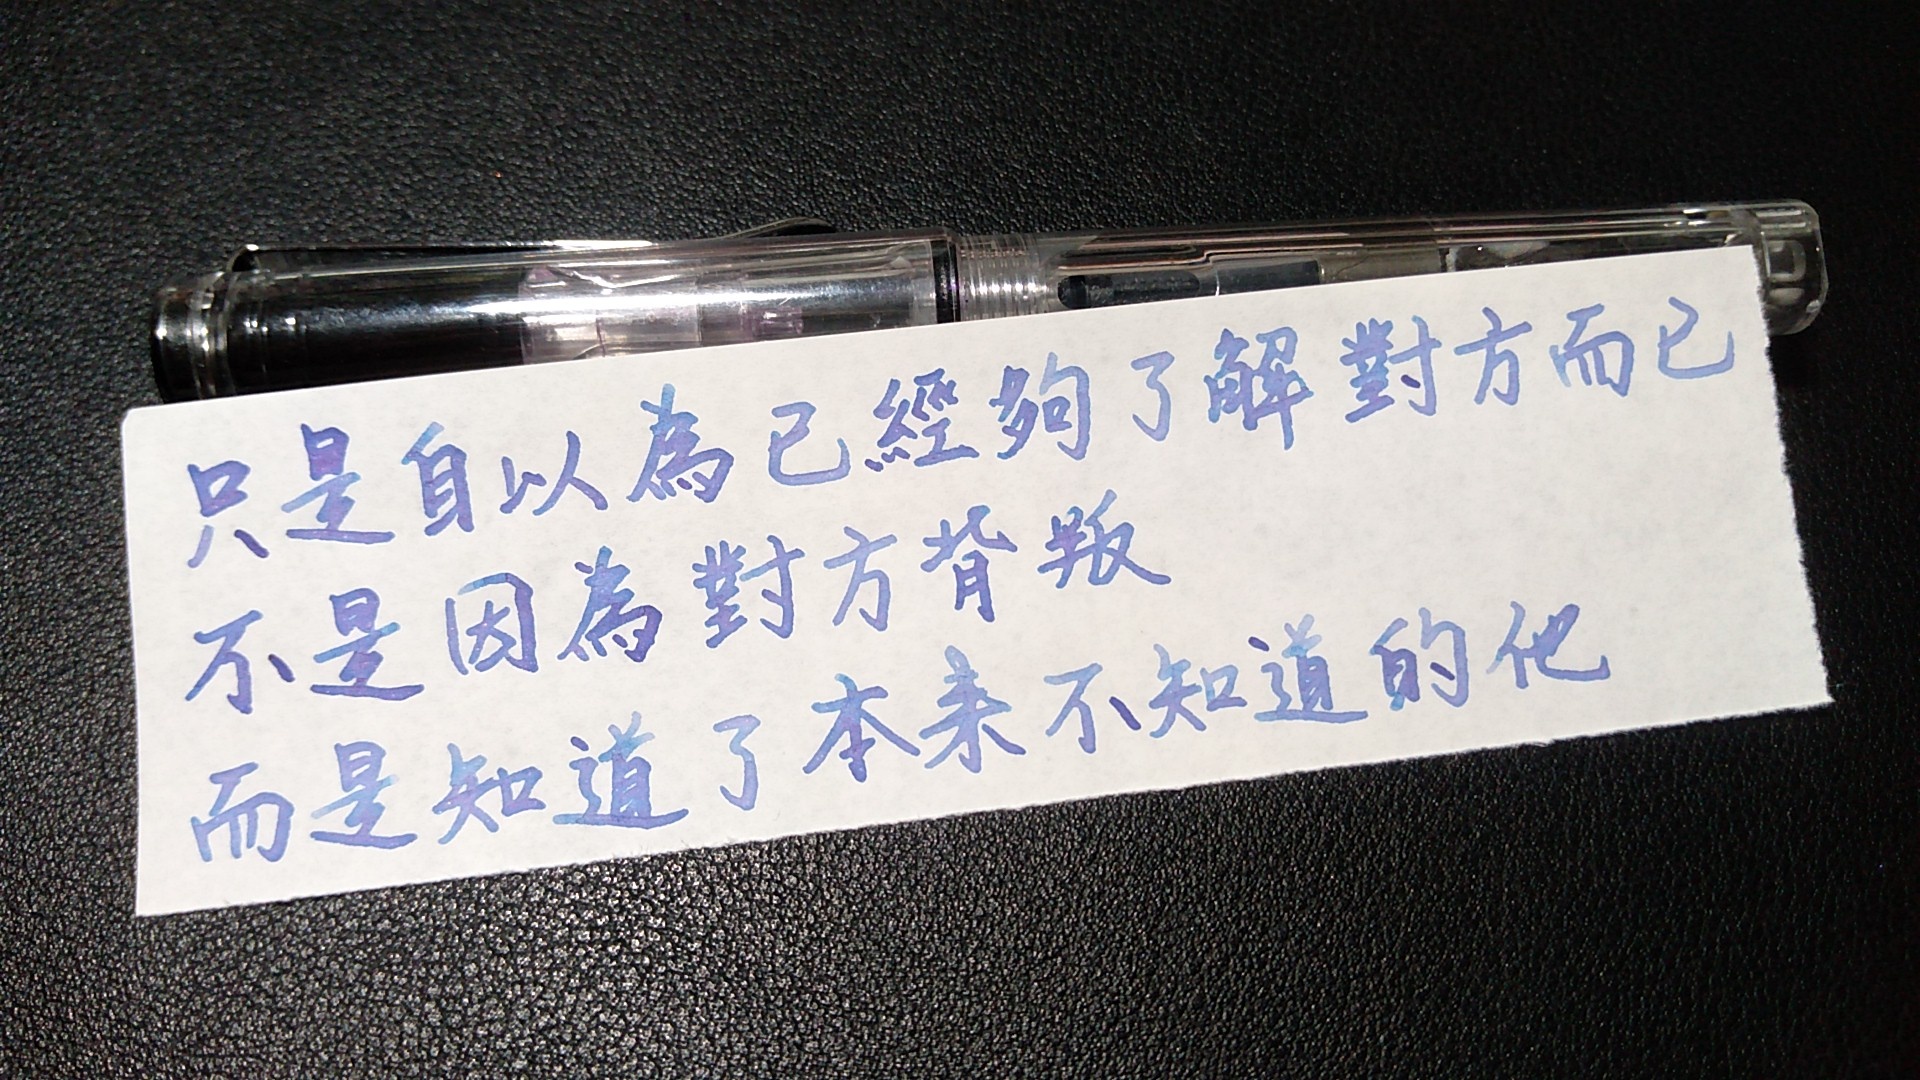 只是自以為已經夠了解對方而已
不是因為對方背叛
而是知道了本来不知道的他